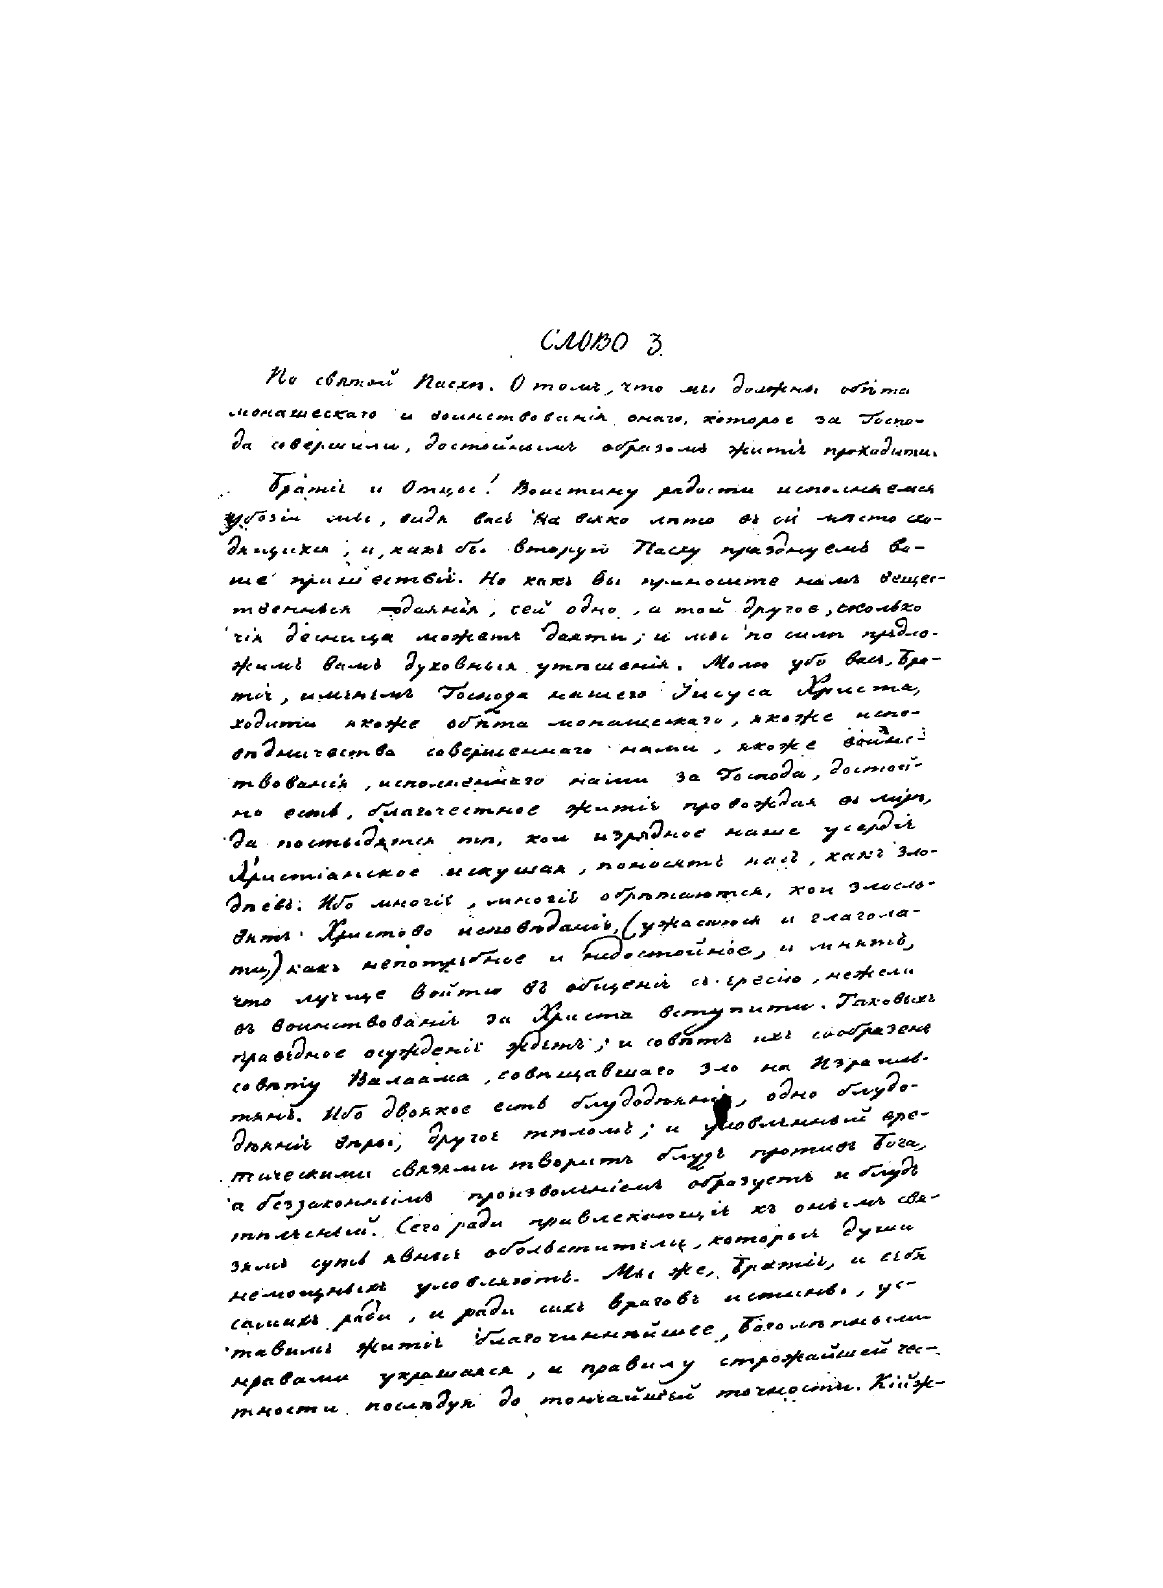 СЛОВО 3.
По святой Пасхѣ. О томъ, что мы должны обѣта
монашескаго и воинствованія онаго, которое за Госпо-
да совершили, достойнымъ образомъ житіе проходити.
Братіе и Отцы! Воистину радости исполняемся
убозіи мы, видя васъ на всяко лѣто въ сіе мѣсто схо-
дящихся, и, какъ бы вторую Пасху празднуемъ ва-
ше пришествіе. Но какъ вы приносите намъ вещес-
твенныя подаянія, сей одно, а той другое, сколько
чія десница можетъ даяти; и мы по силѣ предло-
жимъ вамъ духовныя утѣшенія. Молю убо васъ, Бра-
тіе, именемъ Господа нашего Іисуса Христа,
ходити якоже обѣта монашескаго, якоже испо-
вѣдничества совершеннаго нами, якоже воинс-
твованія, исполненнаго нами за Господа, достой-
но есть, благочестное житіе провождая въ мирѣ,
да постыдятся тѣ, кои изрядное наше усердіе
Христіанское искушая, поносятъ насъ, какъ зло-
дѣевъ. Ибо многіе, многіе обрѣтаются, кои злосло-
вятъ Христово исповѣданіе, (ужасаюся и глагола-
ти,) какъ непотребное и недостойное, и мнятъ,
что лучше войти въ общеніе съ ересію, нежели
въ воинствованіе за Христа вступити. Таковыхъ
праведное осужденіе ждетъ; и совѣтъ ихъ сообразенъ
совѣту Валаама, совѣщавшаго зло на Израиль-
тянъ. Ибо двоякое есть блудодѣяніе, одно блудо-
дѣяніе вѣры, другое тѣломъ; и уловленный ере-
тическими связями творитъ блудъ противъ Бога,
а беззаконнымъ произволеніемъ образуетъ и блудъ
тѣлесный. Сего ради привлекающіе къ онымъ свя-
зямъ суть явные обольстители, которые души
немощныхъ уловляютъ. Мы же, Братіе, и себя
самихъ ради, и ради сихъ враговъ истины, ус-
тавимъ житіе благочиннѣйшее, Боголѣпными
нравами украшаяся, и правилу строжайшей чес-
тности послѣдуя до тончайшей точности. Кійж-